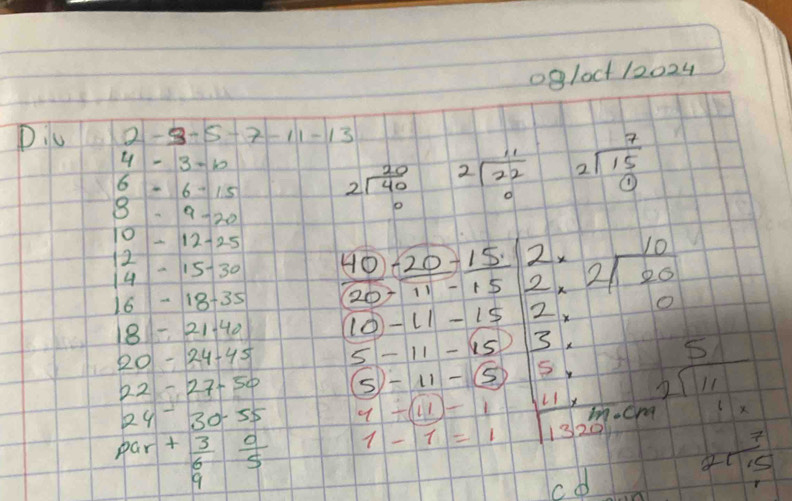 08/oct/2024
Div 2-3-5-7-11-13
4 - 3-10
6 - 6-15
8 - 9-20
10 - 12-25
12 - 15-30
14 - 18-35
16 - 21-40
18 - 24-45
20 - 27-50
22 - 30-55
24
par + 3 0
6 5
9
20
2 40
0
11
2 22
0
7
2 15
1
40-20-15 2x
20-11-15 2x
10-11-15 2x
5-11-15 3x
5-11-5 5x
1-11-1 11x
1-1=1 1320 m.cm
10
2 20
0
5
2 11
1x
7
2 15
1
cd